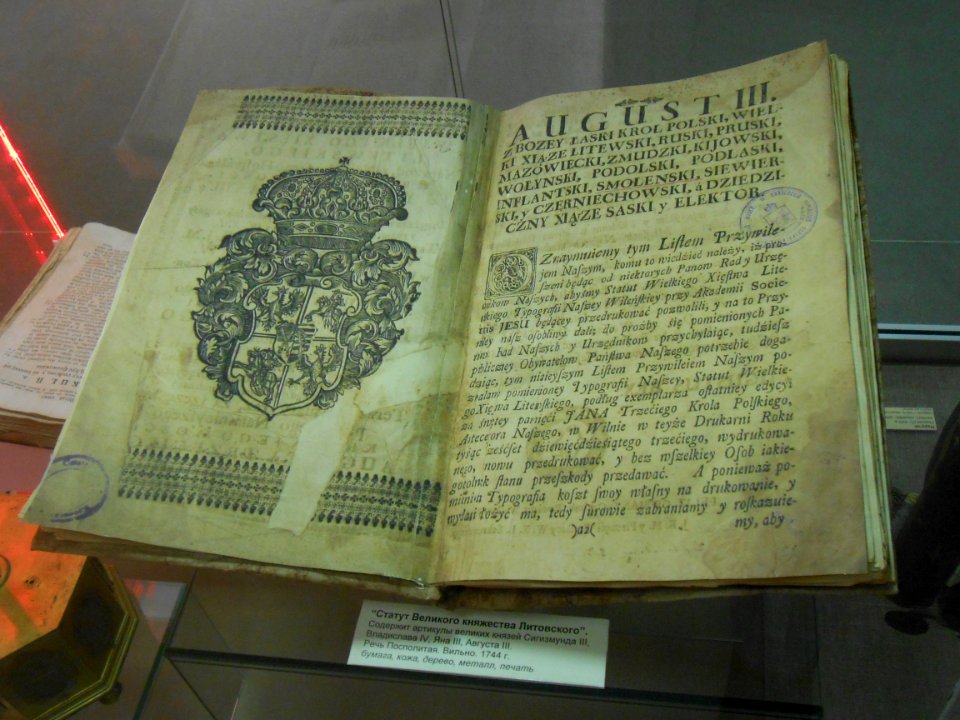 AUGUST III.
Z BOZEY ŁASKI KROL POLSKI, WIEL-
KI XIĄZE LITEWSKI, RUSKI, PRUSKI,
MAZOWIECKI, ZMUDZKI, KIJOWSKI,
WOŁYNSKI, PODOLSKI, PODLASKI,
INFLANTSKI, SMOLENSKI, SIEWIER-
SKI, y CZERNIECHOWSKI, á DZIEDZI-
CZNY XIĄZE SASKI y ELEKTOR.
Znaymuiemy tym Listem Przywile-
jem Naszym, komu to wiedzieć należy, iż pro
szeni będąc od niektorych Panow Rad y Urzę-
dnikow Naszych, abyśmy Statut Wielkiego Xięstwa Lite-
wskiego Typografii Naszey Wileńskiey przy Akademii Socie-
tatis JESU będącey przedrukować pozwolili, y na to Przy-
wiley nasz osobliwy dali; do prozby się pomienionych Pa-
now Rad Naszych y Urzędnikow przychylaiąc, tudziesz
publiczney Obywatelow Państwa Naszego potrzebie doga-
dzaiąc, tym ninieyszym Listem Przywileiem Naszym po-
zwalam pomienioney Typografii Naszey, Statut Wielkie-
go Xięstwa Litewskiego, podług exemplarza ostatniey edycyi
za święty pamęći JANA Trzećiego Krola Polskiego,
Antecessora Naszego, w Wilnie w teyże Drukarni Roku
tysiąc sześćset dziewięćdziesiątego trzećiego, wydrukowa-
nego, nowu przedrukować, y bez wszelkiey Osob iakie-
gożkolwiek stanu przeszkody przedawać. A ponieważ po-
mieniona Typografia koszt swoy własny na drukowanie, y
wydati łożyć ma, tedy surowie zabraniamy y roskazuie-
)a2( my, aby
"Статут Великого княжества Литовского".
Содержит артикулы великих князей Сигизмунда III,
Владислава IV, Яна III, Августа III.
Речь Посполитая. Вильно. 1744 г.
бумага, кожа, дерево, металл, печать